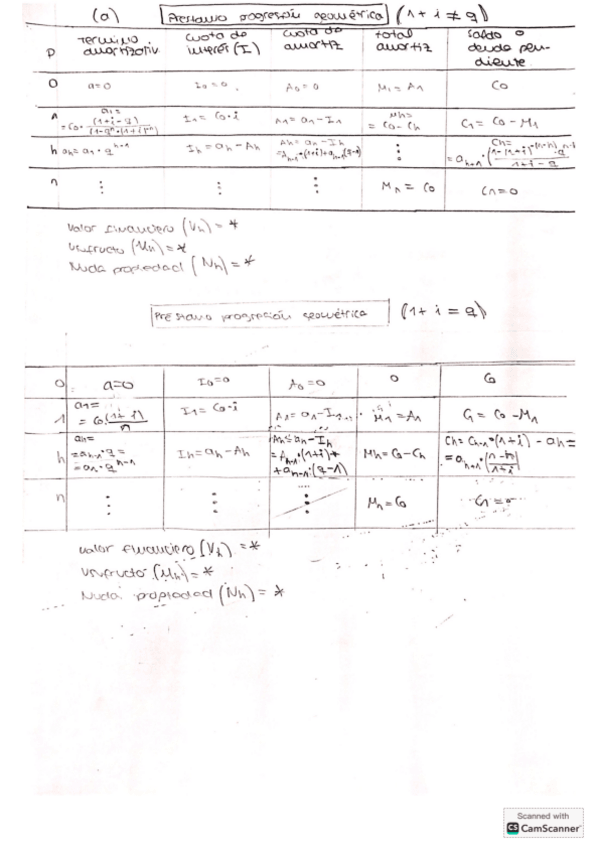 (a) Prestamo progresión geométrica (1 + i ≠ q)
P termino amortizativ. cuota de interés (I) cuota de amortiz total amortiz saldo o deuda pendiente
0 a=0 I₀=0 A₀=0 M₁ = A₁ C₀
a₁= = C₀ · (1+i-q) / (1-qⁿ·(1+i)⁻ⁿ) I₁ = C₀·i A₁ = a₁-I₁ = C₀-Ch C₁ = C₀ - M₁
h ah = a₁ · q^(h-1) Ih = ah - Ah Ah = ah - Ih = Ah-1·(1+i)+ah-1(q-1) ⋮ Ch= = ah+1 ·
n ⋮ ⋮ ⋮ Mn = C₀ Cn=0
Valor financiero (Vh) = *
Usufructo (Uh) = *
Nuda propiedad (Nh) = *
Prestamo progresión geométrica (1 + i = q)
0 a=0 I₀=0 A₀=0 0 C₀
1 a₁= = C₀·(1+i)/n I₁ = C₀·i A₁ = a₁-I₁ M₁ = A₁ C₁ = C₀ - M₁
h ah= = ah-1·q = = a₁·q^(h-1) Ih = ah - Ah Ah = ah - Ih = Ah-1·(1+i)+ +ah-1·(q-1) Mh = C₀-Ch Ch = Ch-1·(1+i) - ah = = ah+1·(n-h)/(1+i)
n ⋮ ⋮ ⋮ Mn = C₀
Valor financiero (Vh) = *
Usufructo (Uh) = *
Nuda propiedad (Nh) = *
Scanned with
CS CamScanner